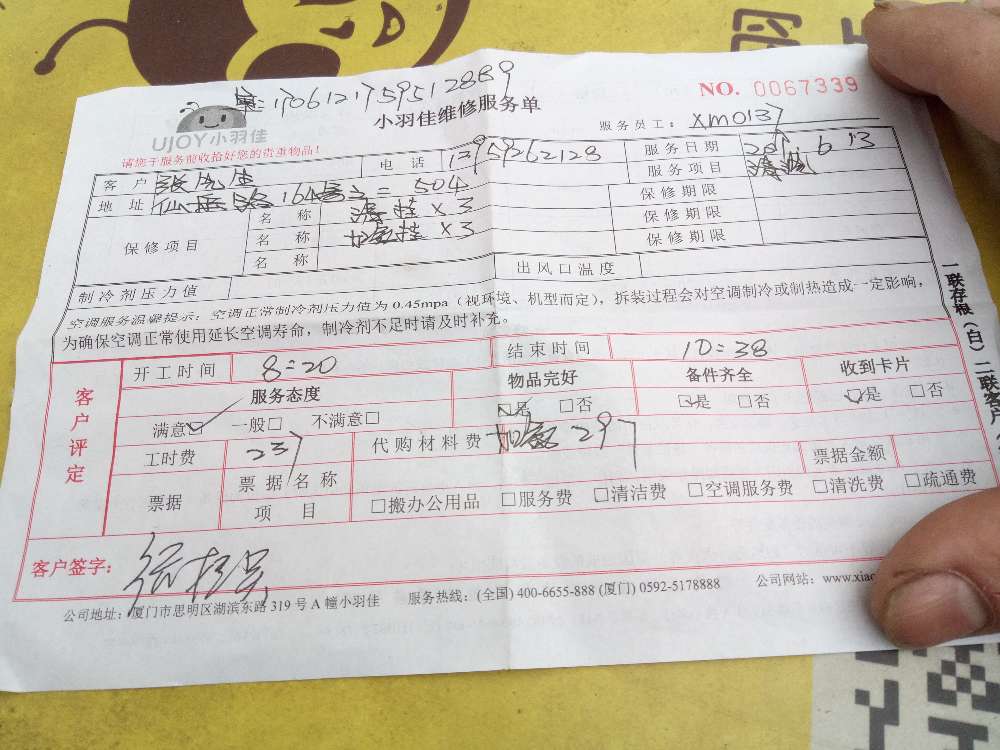 1706121759512889
NO. 0067339
UJOY小羽佳
小羽佳维修服务单
服务员工: xm0137
请您于服务前收拾好您的贵重物品!
客 户 电 话 13959262128 服务日期 6 13
地 址 仙岳路164号之二 504 服务项目
保修项目 名 称 挂×3 保修期限
名 称 加氟挂×3 保修期限
名 称 保修期限
制冷剂压力值 出风口温度
空调服务温馨提示: 空调正常制冷剂压力值为0.45mpa(视环境、机型而定), 拆装过程会对空调制冷或制热造成一定影响,
为确保空调正常使用延长空调寿命, 制冷剂不足时请及时补充。
客户评定
开工时间 8:20 结束时间 10:38
服务态度 物品完好 备件齐全 收到卡片
满意☑ 一般□ 不满意□ ☑是 □否 ☑是 □否 ☑是 □否
工时费 237 代购材料费 加氟 297
票据 票据名称 票据金额
项 目 □搬办公用品 □服务费 □清洁费 □空调服务费 □清洗费 □疏通费
客户签字:
公司地址: 厦门市思明区湖滨东路319号A幢小羽佳 服务热线: (全国) 400-6655-888 (厦门) 0592-5178888 公司网站: www.xiao
一联存根(白) 二联客户